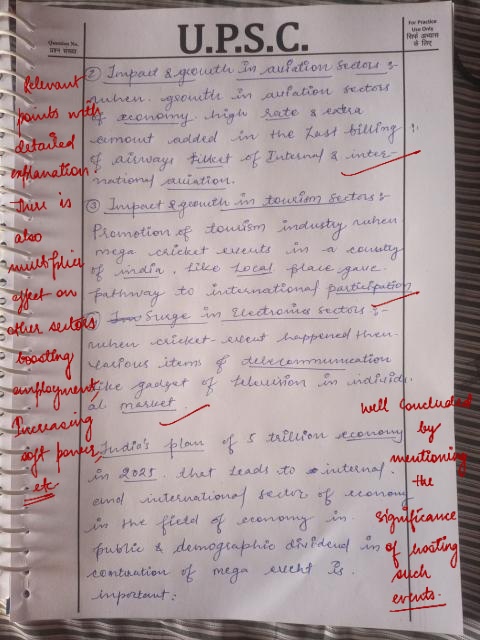 Question No.
प्रश्न संख्या
U.P.S.C.
For Practice
Use Only
सिर्फ अभ्यास
के लिए
② Impact & growth in aviation sectors :-
when growth in aviation sectors
of economy high rate & extra
amount added in the last billing
of airways ticket of Internal & inter-
national aviation.
③ Impact & growth in tourism sectors :-
Promotion of tourism industry when
mega cricket events in a country
of india. Like Local place gave
pathway to international participation
Surge in Electronics sectors :-
when cricket event happened then
various items of telecommunication
like gadget of television in individu
al market.
India's plan of 5 trillion economy
in 2025. that leads to internal
and international sector of economy
in the field of economy in
public & demographic dividend in
contuation of mega event is
important:
Relevant
points with
detailed
explanation.
There is
also
multiplier
effect on
other sectors
boosting
employment,
Increasing
soft power,
etc
Well concluded
by
mentioning
the
significance
of hosting
such
events.